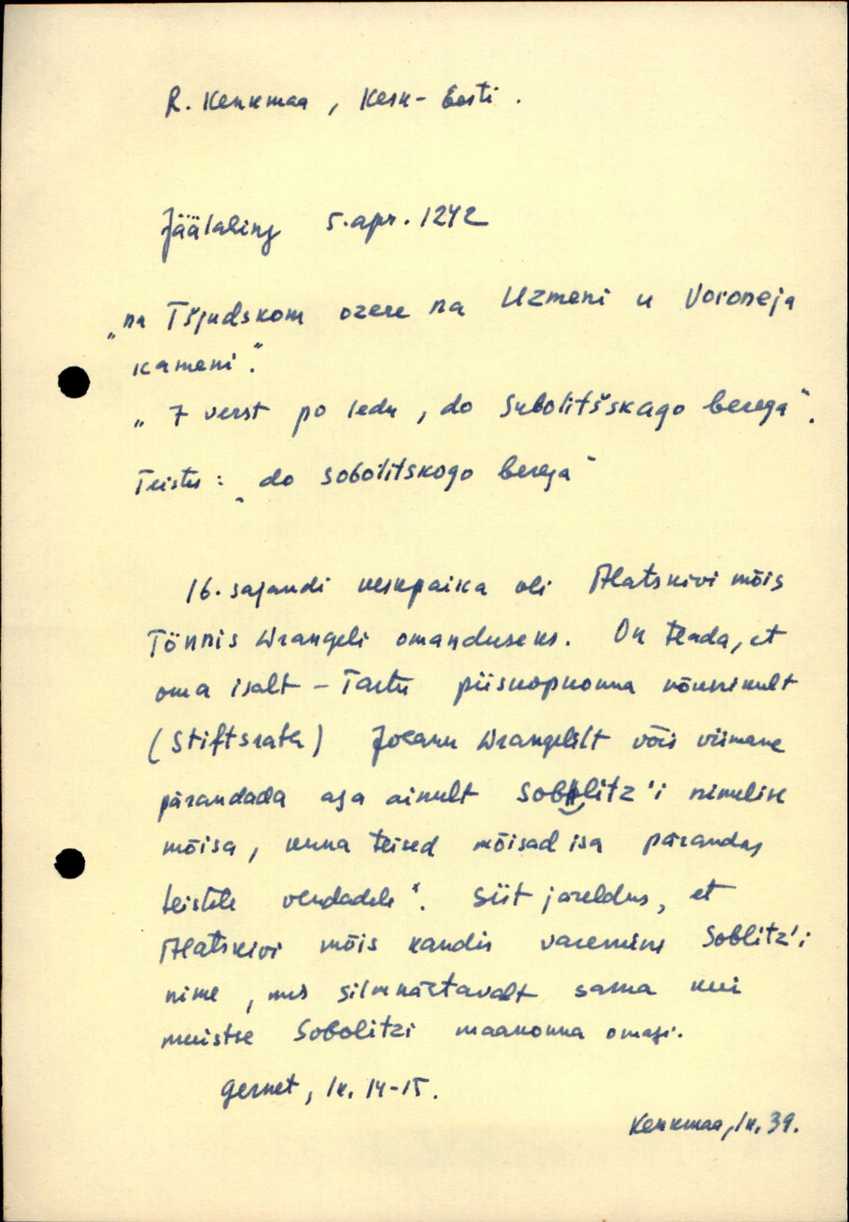 R. Kenkmaa, Kesk-Eesti.
Jäälahing 5. apr. 1242
„na Tšjudskom ozere na Uzmeni u Voroneja
kameni".
„7 verst po ledu, do Subolitšskago berega".
Teistes: „do Sobolitskogo berega"
16. sajandi keskpaika oli Alatskivi mõis
Tönnis Wrangeli omanduseks. On teada, et
oma isalt - Tartu piiskopkonna nõunikult
(Stiftsrath) Johann Wrangelilt võis viimane
pärandada aga ainult Soblitz'i nimelise
mõisa, kuna teised mõisad isa pärandas
teistele vendadele". Siit järeldus, et
Alatskivi mõis kandis varemini Soblitz'i
nime, mis silmnähtavalt sama kui
muistse Sobolitzi maakonna omagi.
Gernet, lk. 14-15.
Kenkmaa, lk. 39.